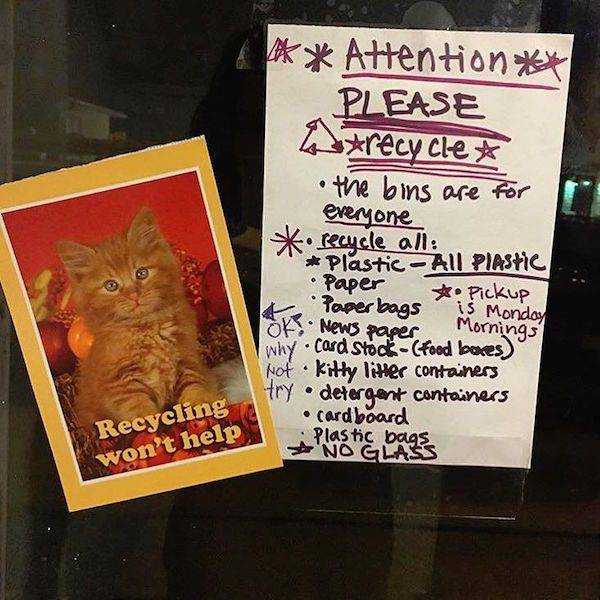 * Attention *
PLEASE
recycle
• the bins are for
everyone
• recycle all:
* Plastic - All Plastic
• Paper
• Paper bags
• News paper
• Card Stock - (food boxes)
• Kitty litter containers
• detergent containers
• cardboard
• Plastic bags
NO GLASS
• Pickup
is Monday
Mornings
OK?
why
not
try
Recycling
won't help